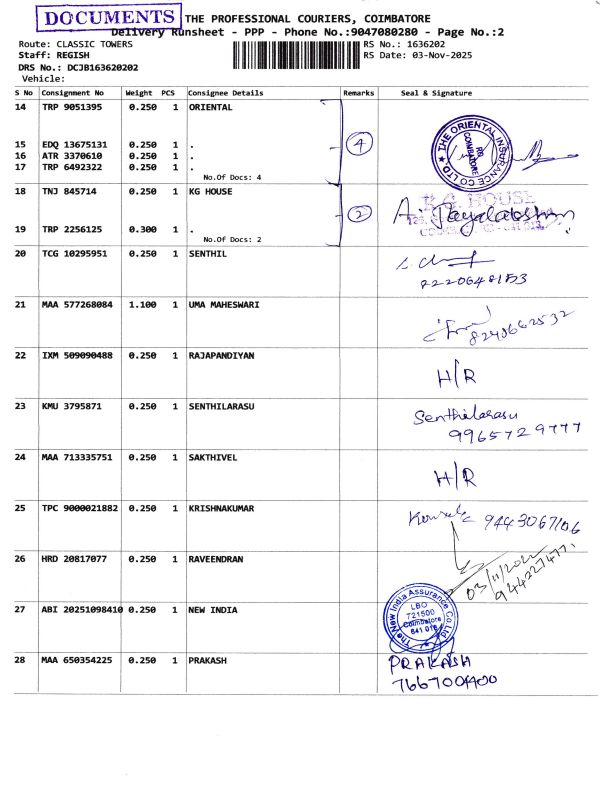 DOCUMENTS THE PROFESSIONAL COURIERS, COIMBATORE
Delivery Runsheet - PPP - Phone No.:9047080280 - Page No.:2
Route: CLASSIC TOWERS RS No.: 1636202
Staff: REGISH RS Date: 03-Nov-2025
DRS No.: DCJB163620202
Vehicle:
S No Consignment No Weight PCS Consignee Details Remarks Seal & Signature
14 TRP 9051395 0.250 1 ORIENTAL
THE ORIENTAL INSURANCE CO LTD COIMBATORE
15 EDQ 13675131 0.250 1 . 4
16 ATR 3370610 0.250 1 .
17 TRP 6492322 0.250 1 .
No.Of Docs: 4
18 TNJ 845714 0.250 1 KG HOUSE K.G. HOUSE
2
19 TRP 2256125 0.300 1 .
No.Of Docs: 2
20 TCG 10295951 0.250 1 SENTHIL
21 MAA 577268084 1.100 1 UMA MAHESWARI
8248662532
22 IXM 509090488 0.250 1 RAJAPANDIYAN
H/R
23 KMU 3795871 0.250 1 SENTHILARASU Senthilarasu
9965729777
24 MAA 713335751 0.250 1 SAKTHIVEL
H/R
25 TPC 9000021882 0.250 1 KRISHNAKUMAR
26 HRD 20817077 0.250 1 RAVEENDRAN
27 ABI 20251098410 0.250 1 NEW INDIA
The New India Assurance Co. Ltd
LBO
721500
Coimbatore
641 018
28 MAA 650354225 0.250 1 PRAKASH PRAKASH
7667004400